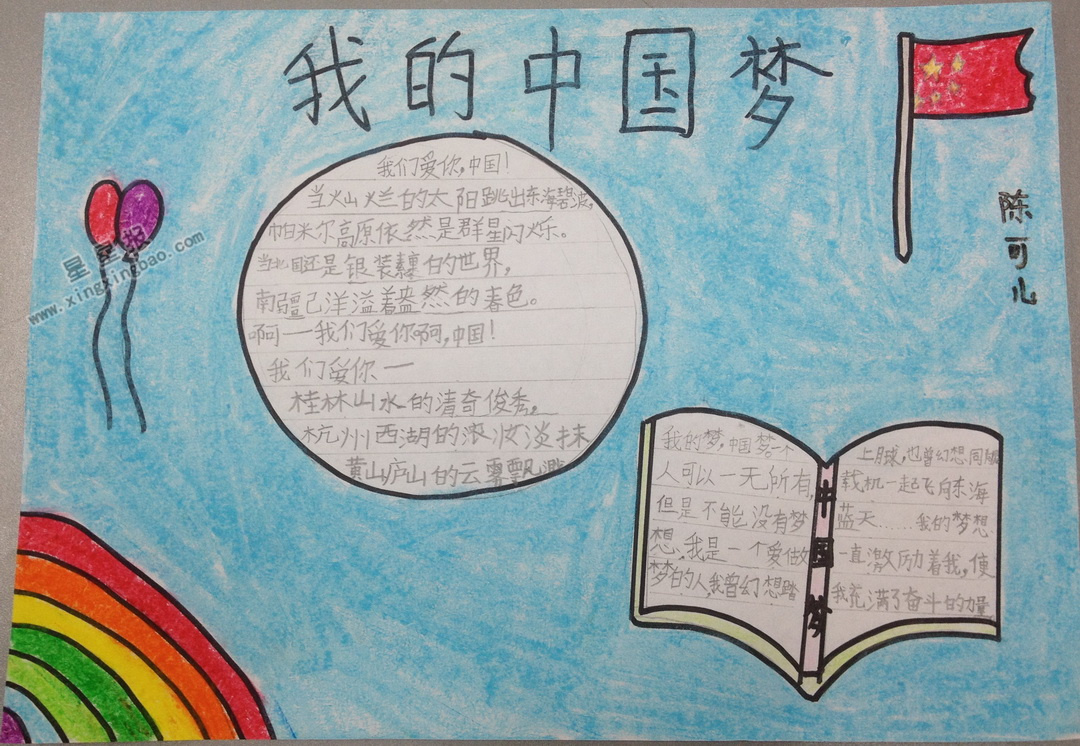 我的中国梦
陈可儿
星星报
www.xingxingbao.com
我们爱你,中国!
当灿烂的太阳跳出东海碧波,
帕米尔高原依然是群星闪烁。
当北国还是银装素裹的世界,
南疆已洋溢着盎然的春色。
啊一我们爱你啊,中国!
我们爱你一
桂林山水的清奇俊秀。
杭州西湖的浓妆淡抹
黄山庐山的云雾飘渺
我的梦,中国梦一个
人可以一无所有,
但是不能没有梦
想.我是一个爱做
梦的人,我曾幻想踏
中国梦
上月球,也曾幻想同
载机一起飞向东海
蓝天......我的梦想
一直激励着我,使
我充满了奋斗的力量